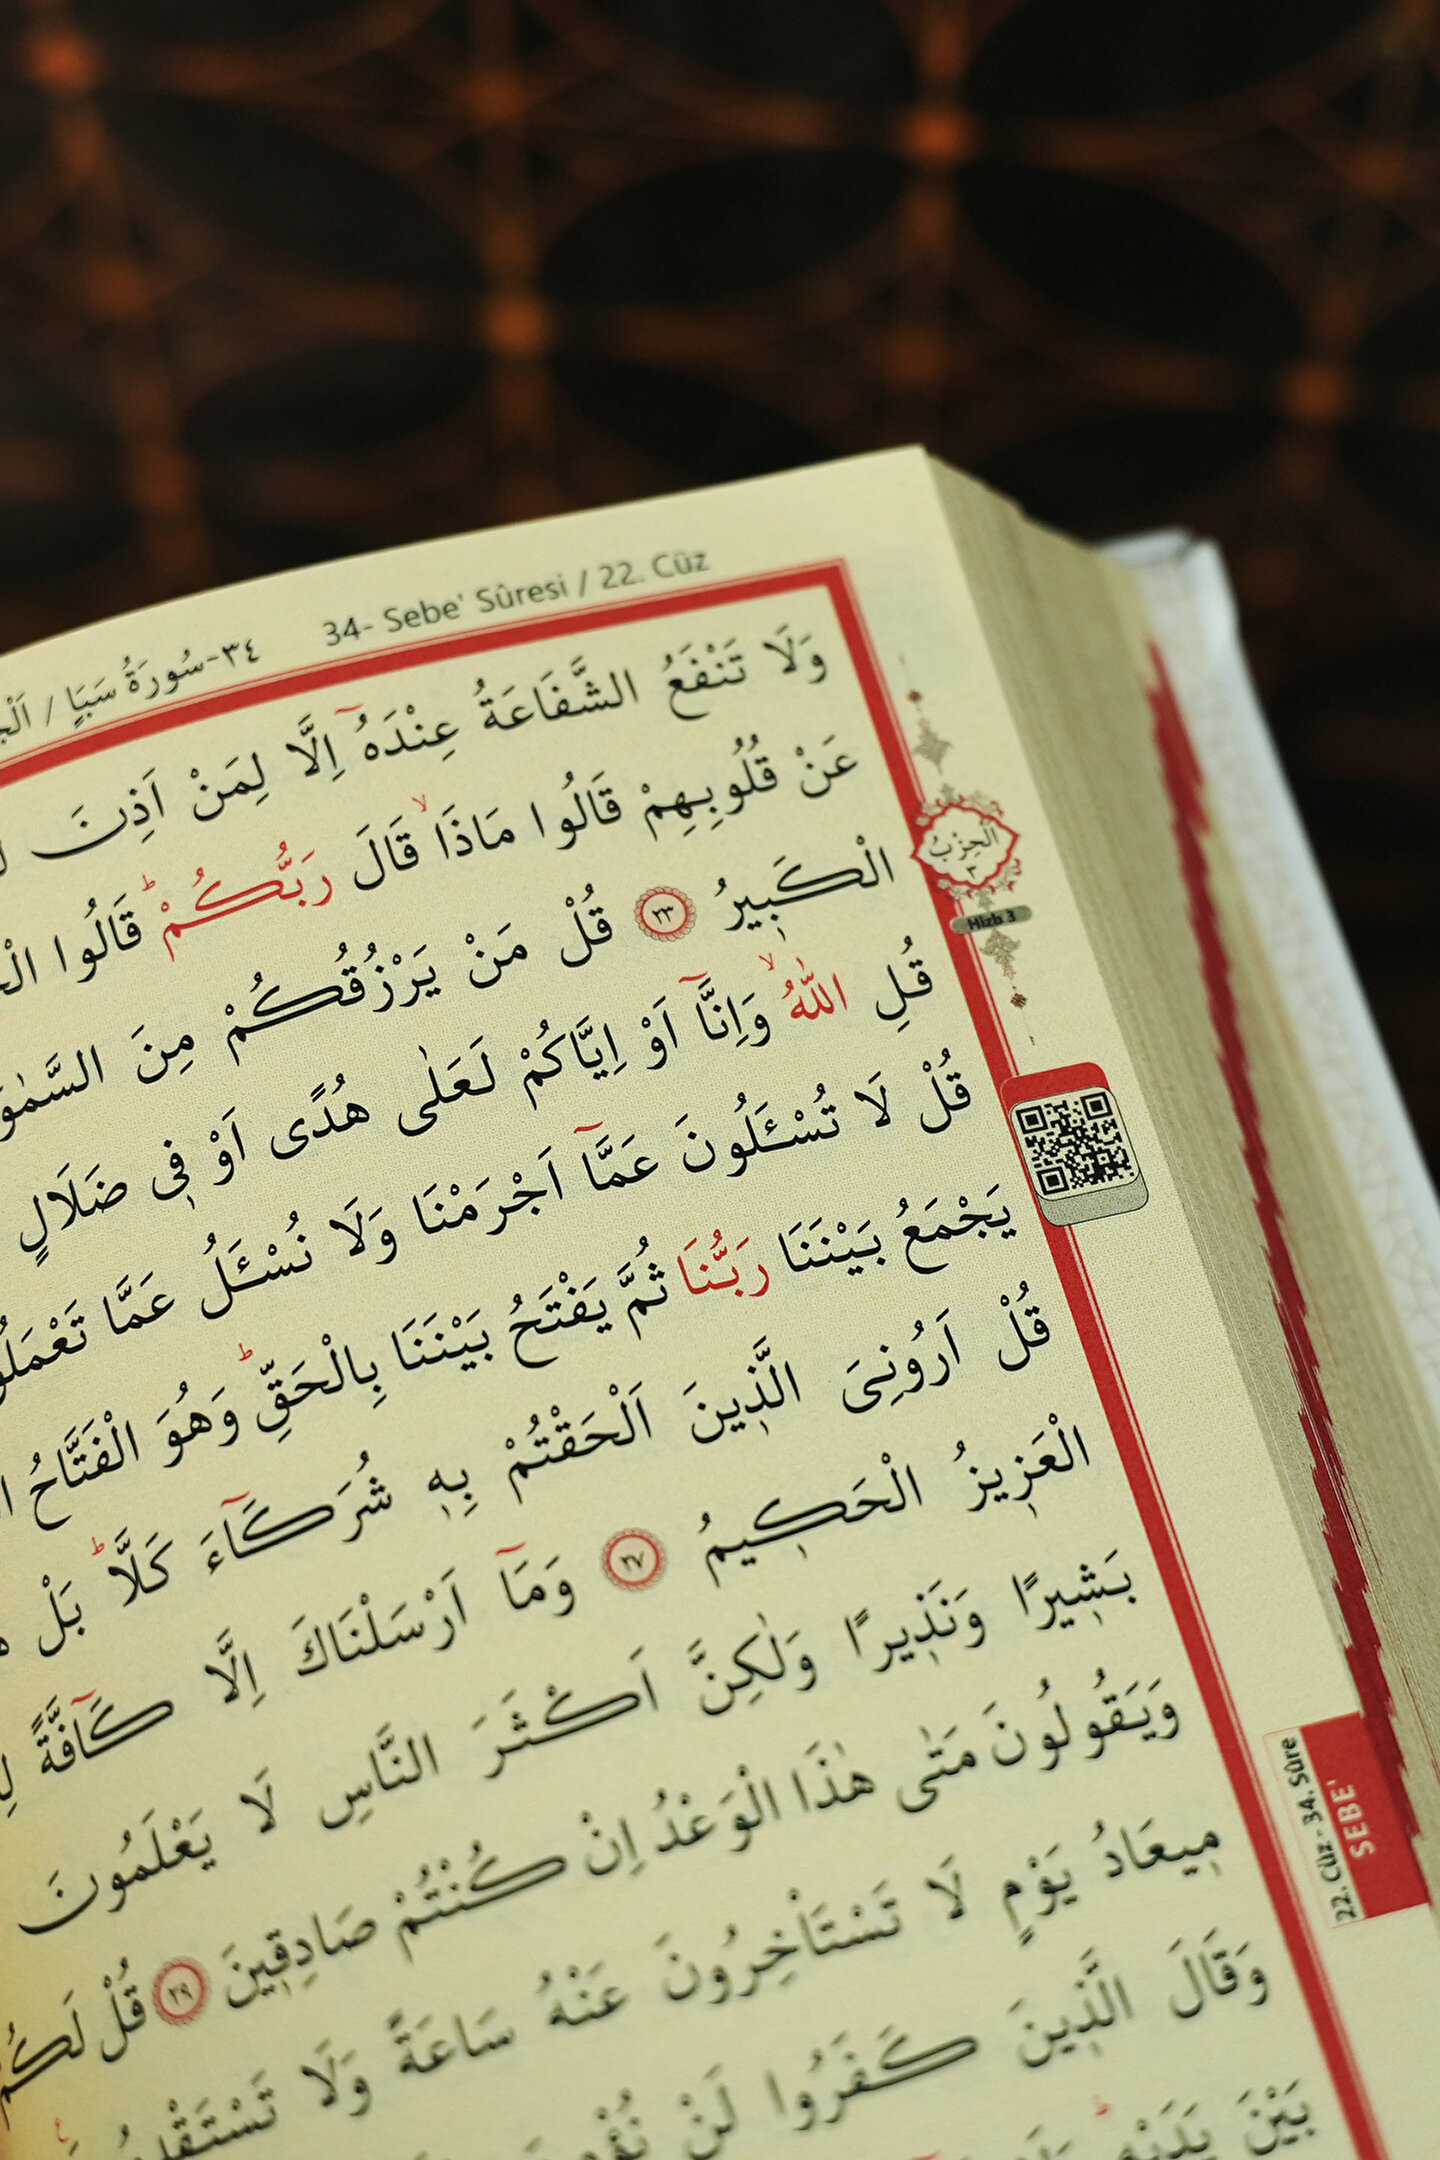 34- Sebe' Sûresi / 22. Cüz
٣٤-سُورَةُ سَبَاٍ /
وَلَا تَنْفَعُ الشَّفَاعَةُ عِنْدَهُٓ اِلَّا لِمَنْ اَذِنَ
عَنْ قُلُوبِهِمْ قَالُوا مَاذَاۙ قَالَ رَبُّكُمْۜ قَالُوا
الْكَب۪يرُ ٢٣ قُلْ مَنْ يَرْزُقُكُمْ مِنَ
قُلِ اللّٰهُۙ وَاِنَّٓا اَوْ اِيَّاكُمْ لَعَلٰى هُدًى اَوْ ف۪ي ضَلَالٍ
قُلْ لَا تُسْـَٔلُونَ عَمَّٓا اَجْرَمْنَا وَلَا نُسْـَٔلُ عَمَّا
يَجْمَعُ بَيْنَنَا رَبُّنَا ثُمَّ يَفْتَحُ بَيْنَنَا بِالْحَقِّۜ وَهُوَ الْفَتَّاحُ
قُلْ اَرُونِيَ الَّذ۪ينَ اَلْحَقْتُمْ بِه۪ شُرَكَٓاءَ كَلَّاۜ بَلْ
الْعَز۪يزُ الْحَك۪يمُ ٢٧ وَمَٓا اَرْسَلْنَاكَ اِلَّا كَٓافَّةً
بَش۪يرًا وَنَذ۪يرًا وَلٰكِنَّ اَكْثَرَ النَّاسِ لَا يَعْلَمُونَ
وَيَقُولُونَ مَتٰى هٰذَا الْوَعْدُ اِنْ كُنْتُمْ صَادِق۪ينَ ٢٩ قُلْ لَكُمْ
م۪يعَادُ يَوْمٍ لَا تَسْتَأْخِرُونَ عَنْهُ سَاعَةً وَلَا
وَقَالَ الَّذ۪ينَ كَفَرُوا لَنْ
بَيْنَ يَدَيْهِۜ
اَلْحِزْبُ
٣
Hizb 3
22. Cüz - 34. Sûre
SEBE'